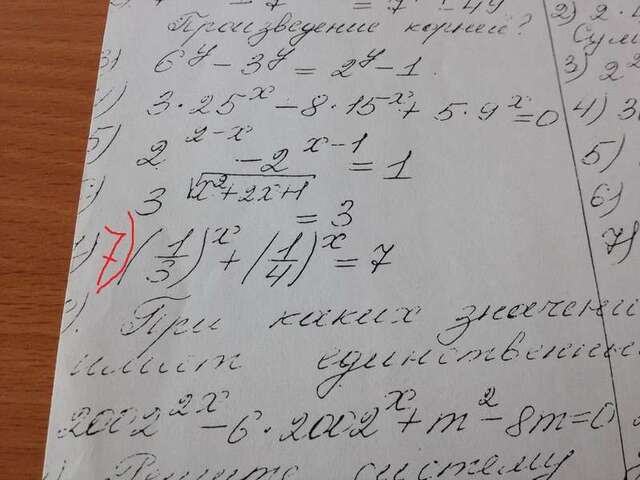 Произведение корней?
6^y - 3^y = 2^y - 1
3·25^x - 8·15^x + 5·9^x = 0
5) 2^{2-x} - 2^{x-1} = 1
3^{√(x²+2x+1)} = 3
7) (1/3)^x + (1/4)^x = 7
При каких значени
имеет единственны
2002^{2x} - 6·2002^x + m² - 8m = 0
Решите систему
2) 2
Сум
3) 2
4) 3
5)
6)
7)